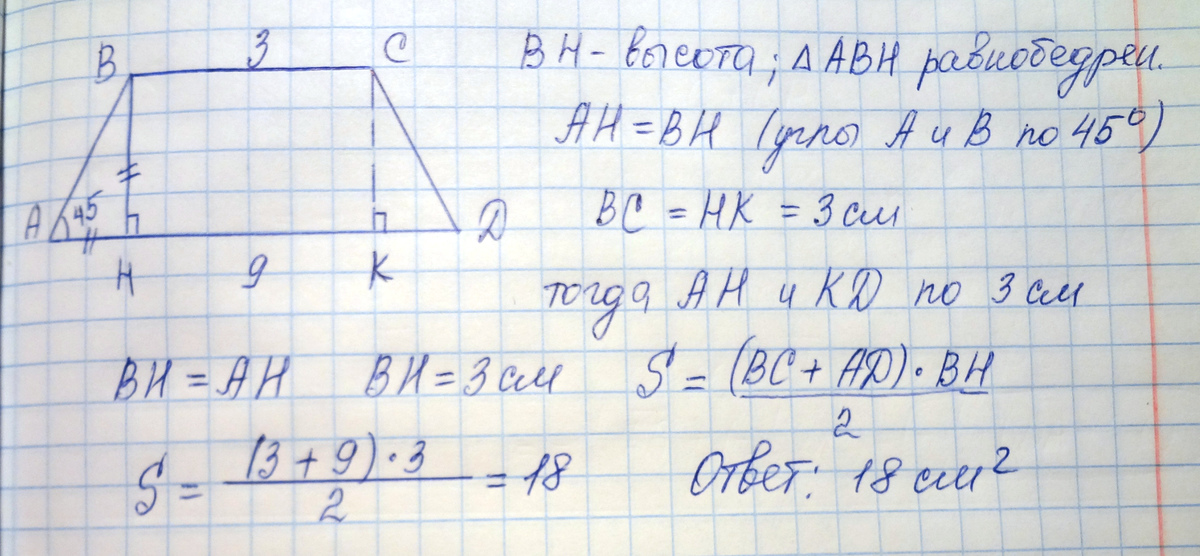 B 3 C
A 45
H 9 K D
BH - высота; △ABH равнобедрен.
AH = BH (углы A и B по 45°)
BC = HK = 3 см
тогда AH и KD по 3 см
BH = AH BH = 3 см S = (BC + AD) · BH / 2
S = (3 + 9) · 3 / 2 = 18 Ответ: 18 см²